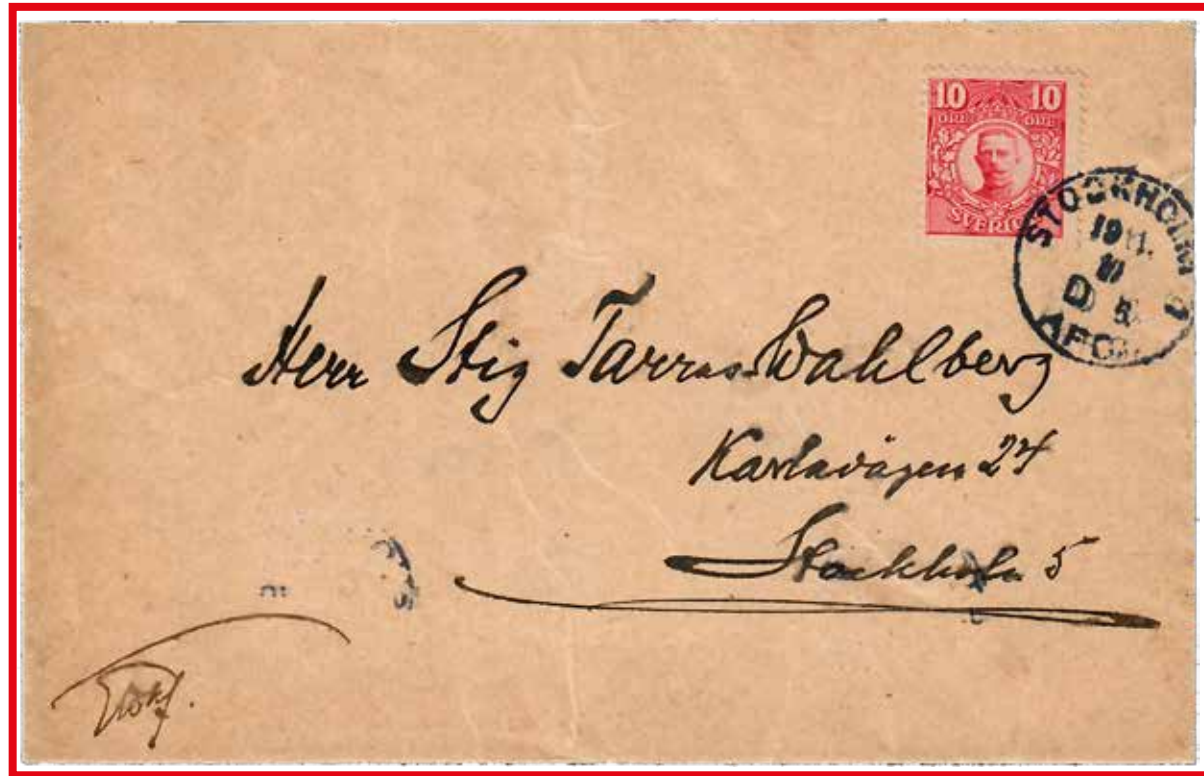 10 10
ÖRE ÖRE
SVERIGE
STOCKHOLM 1
19 11.
D 5
AFG.
Herr Stig Tarras-Wahlberg
Karlavägen 24
Stockholm 5